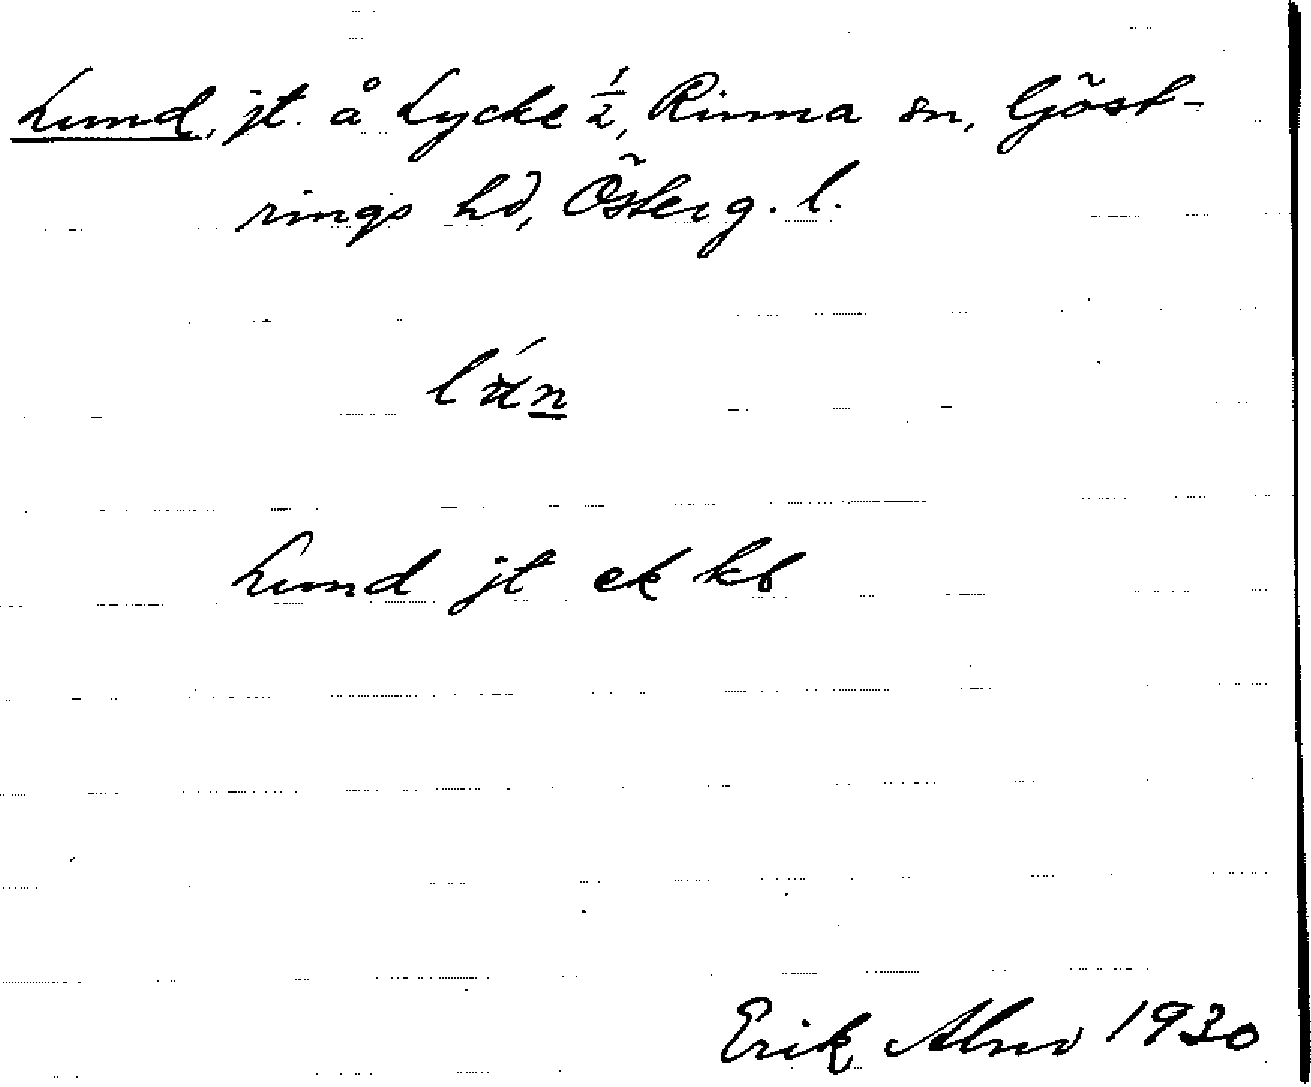 Lund, jt. å Lycke 1/2, Rinna sn, Göst-
rings hd, Österg. l.
Lund jt ek kb
Erik Abrn 1930